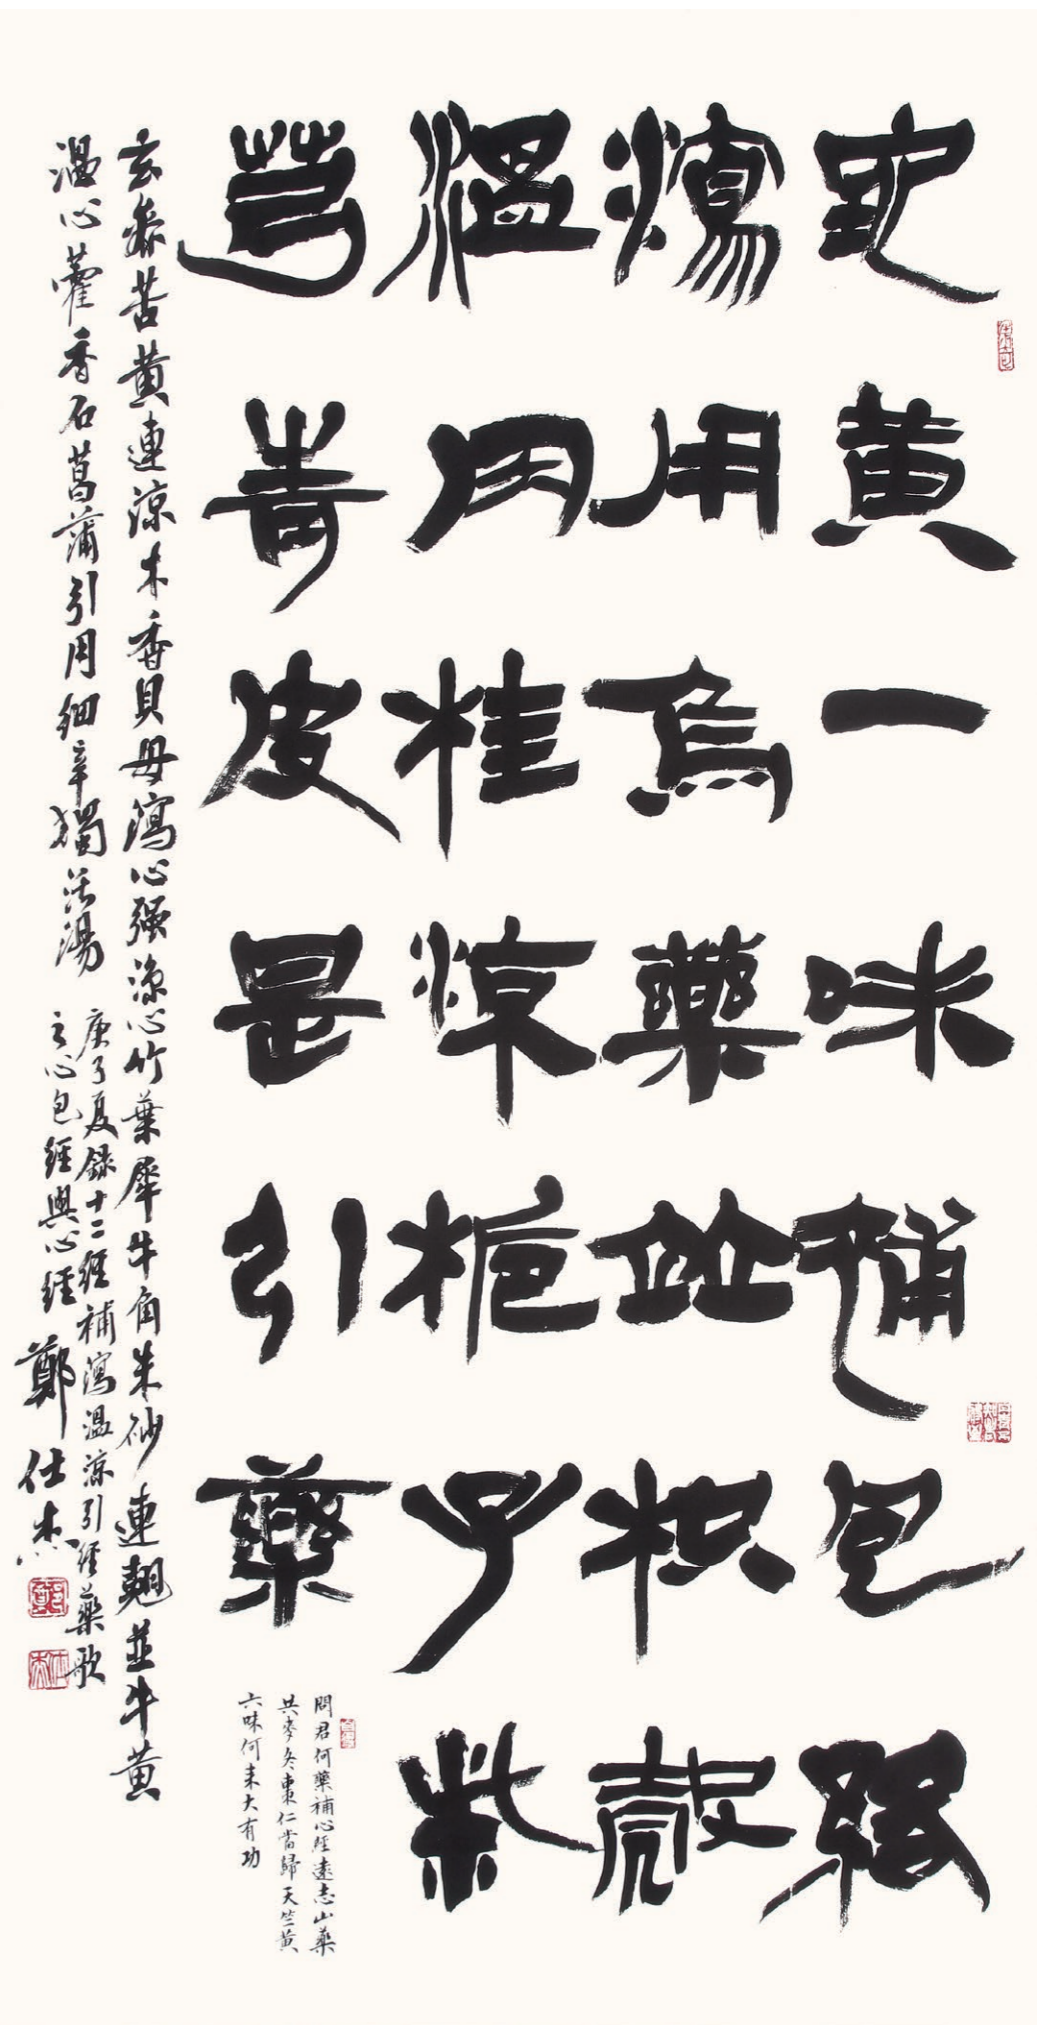 地黄一味補包絡
瀉用烏藥並枳殼
温肉桂涼梔子柴
芎青皮是引藥
問君何藥補心經遠志山藥
共麥冬棗仁當歸天竺黄
六味何來大有功
玄參苦黄連涼木香貝母瀉心强涼心竹葉犀牛角朱砂連翹並牛黄
温心藿香石菖蒲引用細辛獨活湯
庚子夏録十二經補瀉温涼引經藥歌
之心包經與心經
鄭仕杰